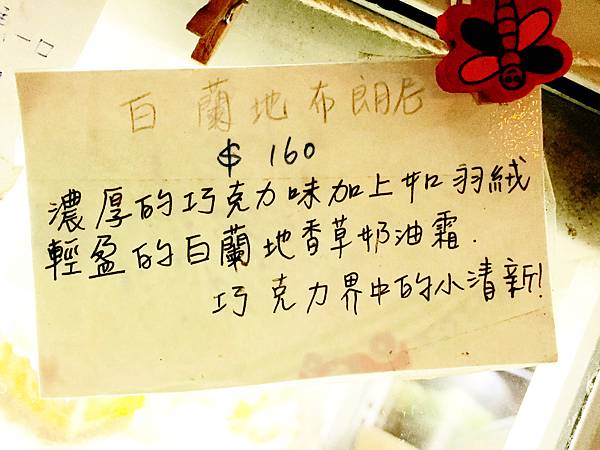 白蘭地布朗尼
$ 160
濃厚的巧克力味加上如羽絨
輕盈的白蘭地香草奶油霜.
巧克力界中的小清新!